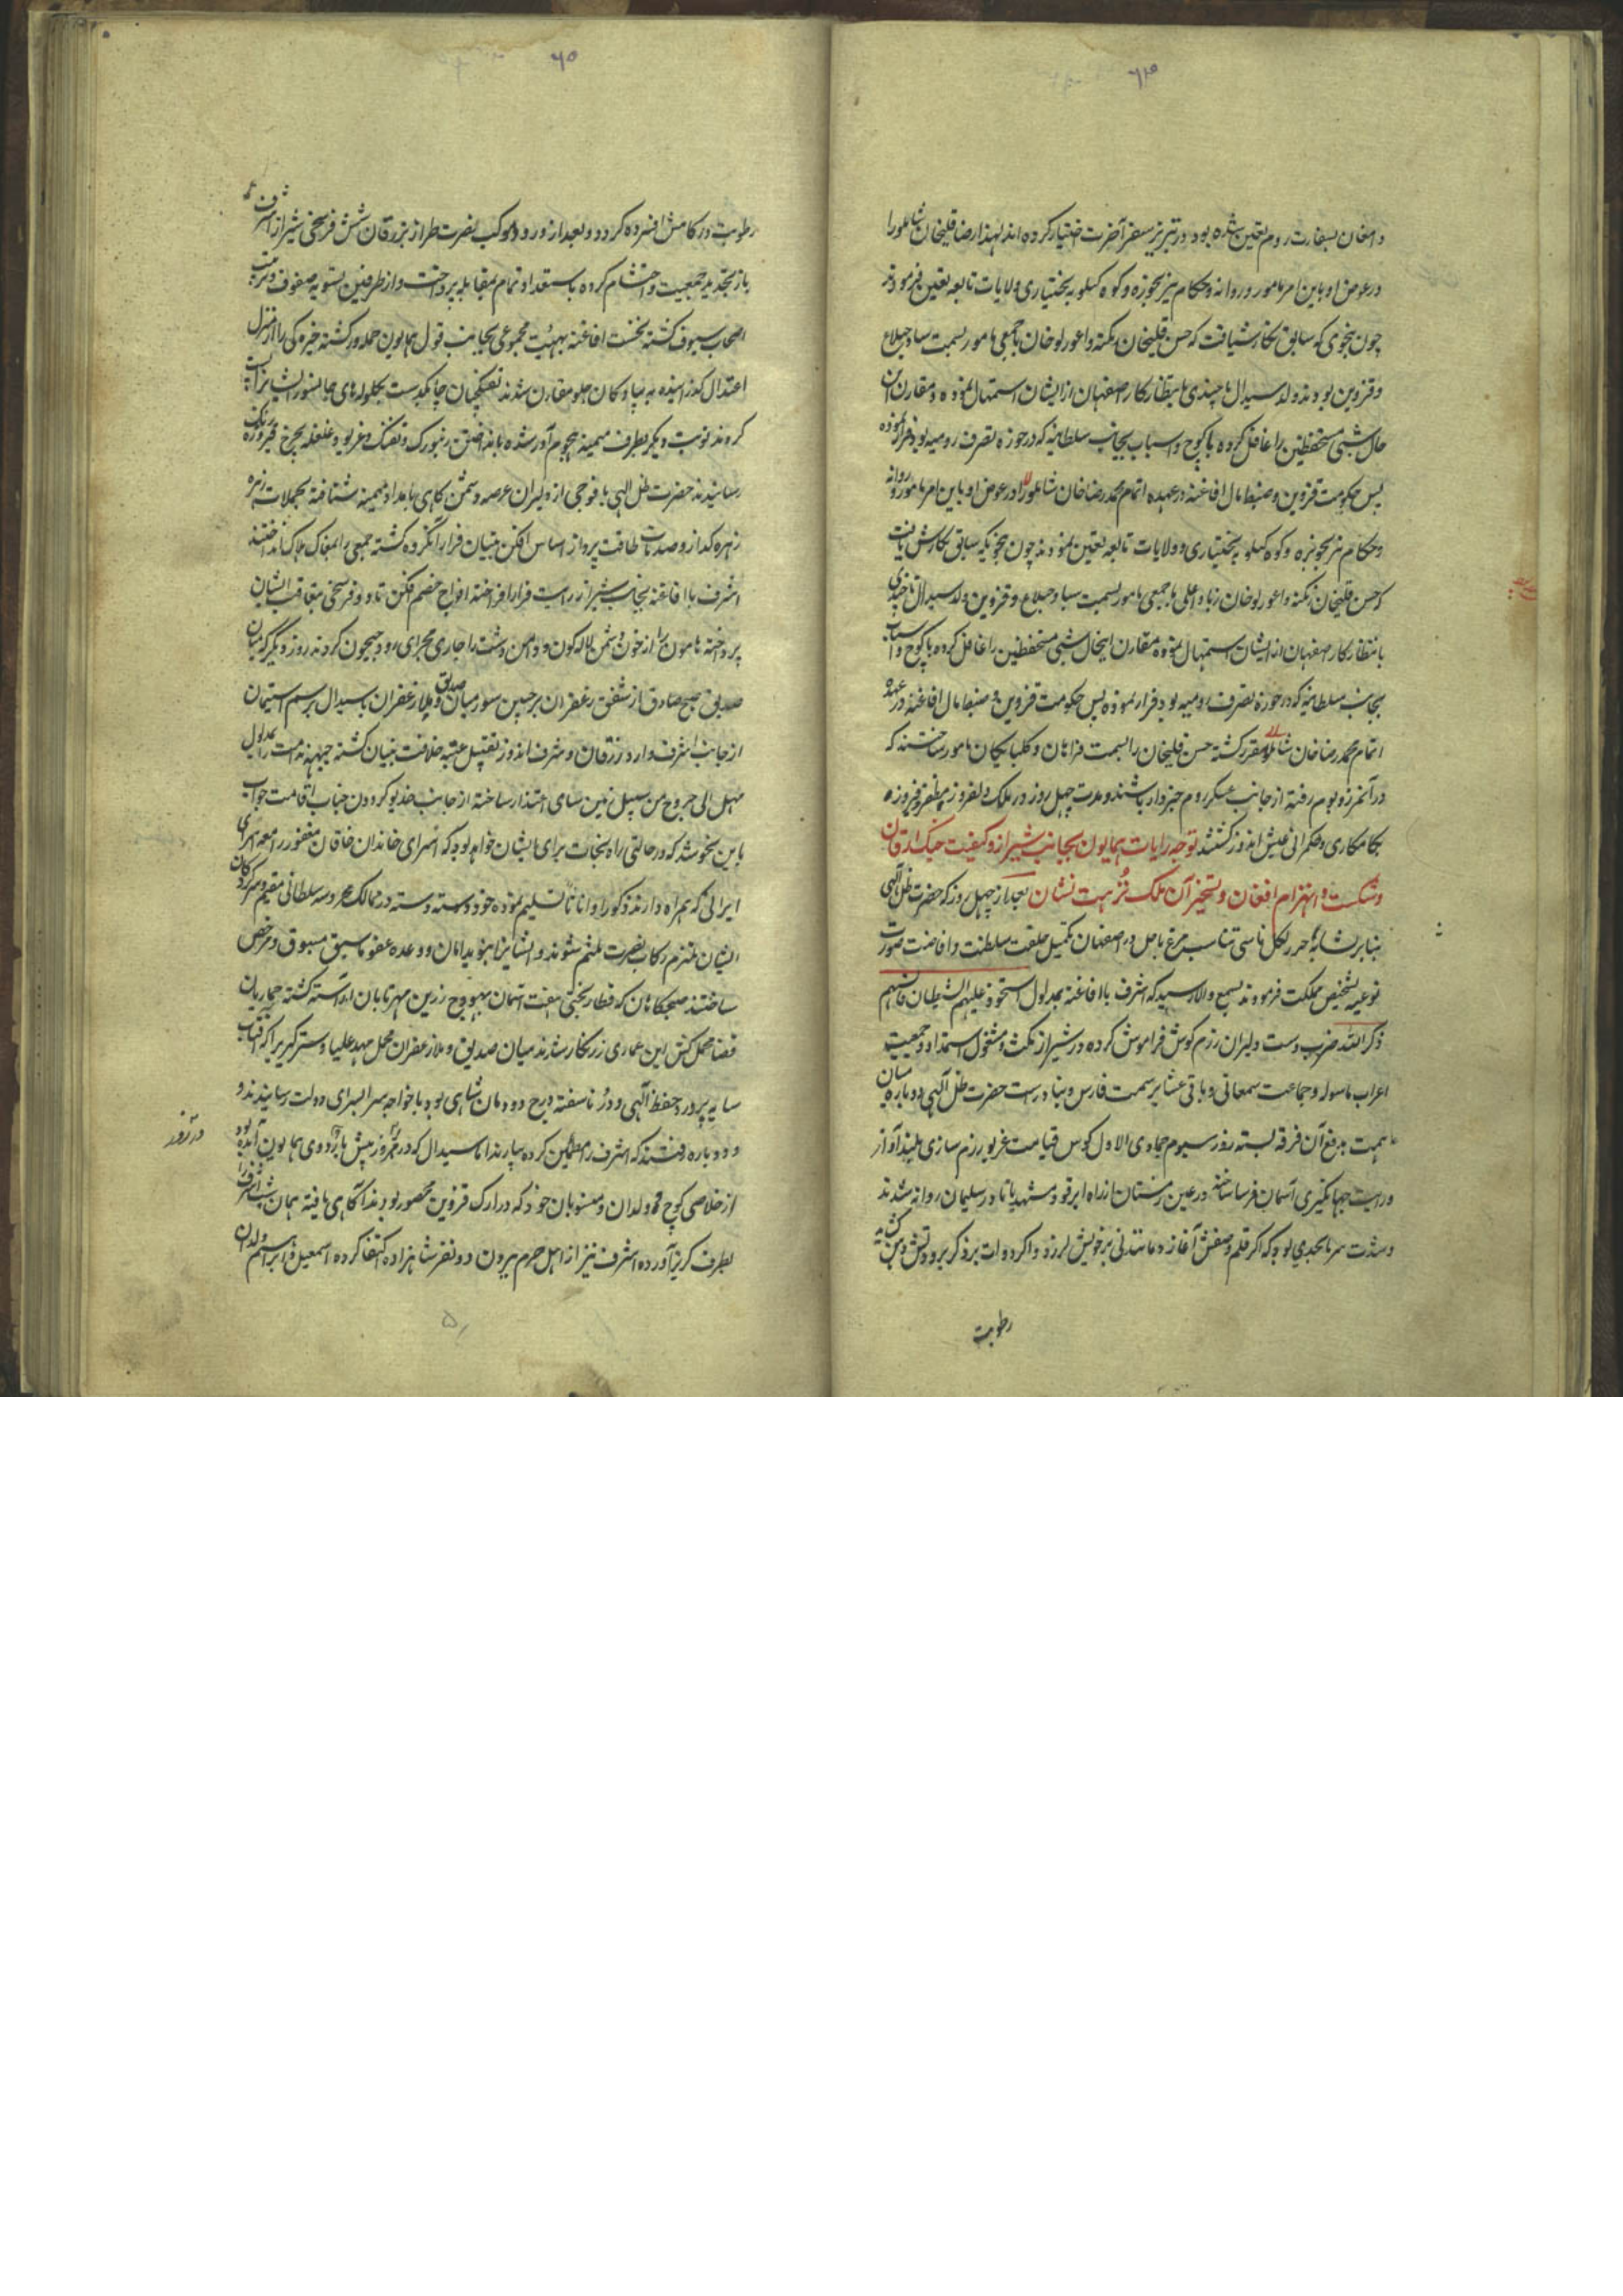 ۶۴
دامغان بسفارت روم تعیین شده بود در تبریز سفر آخرت اختیار کرده اند لهذا رضا قلیخان شاملو را
در عوض او باین امر مامور و روانه و حکام نیز بحویزه و کوه کیلویه بختیاری و ولایات تابعه تعیین فرمودند
چون بنحوی که سابق نگارش یافت که حسن قلیخان زنکنه و اغورلو خان با جمعی مامور بسمت ساوجبلاغ
و قزوین بودند ولد سیدال تا چندی بانتظار کار اصفهان از ایشان استمهال نموده و مقارن این
حال شبی مستحفظین را غافل کرده با کوچ و اسباب بجانب سلطانیه که در حوزه تصرف رومیه بود فرار نموده
پس حکومت قزوین و ضبط مال افاغنه در عهده اتمام محمد رضا خان شاملو را در عوض او باین امر مامور و روانه
و حکام نیز بحویزه و کوه کیلویه بختیاری و ولایات تابعه تعیین نمودند چون بنحویکه سابق نگارش یافت
که حسن قلیخان زنکنه و اغورلو خان زیاد اغلی با جمعی مامور بسمت ساوجبلاغ و قزوین ولد سیدال تا چندی
بانتظار کار اصفهان از ایشان استمهال نموده مقارن اینحال شبی مستحفظین را غافل کرده با کوچ و اسباب
بجانب سلطانیه که در حوزه تصرف رومیه بود فرار نموده پس حکومت قزوین و ضبط مال افاغنه در عهده
اتمام محمد رضا خان شاملو مقرر گشته حسن قلیخان را بسمت فراهان و کلپایکان مامور ساختند که
در آنمرز و بوم رفته از جانب عسکر روم خبردار باشند و مدت چهل روز در ملک دلفروز بمظفر و فیروزه
بکامکاری و حکمرانی عیش اندوز گشتند توجه رایات همایون بجانب شیراز و کیفیت جنک زرقان
و شکست و انهزام افغان و تسخیر آن ملک نزهت نشان بعد از چهل روز که حضرت ظل الهی
بنابر تناسب در اصفهان تکمیل خلعت سلطنت و افاضت صورت
نوعیه تشخیص مملکت فرمودند بسمع والا رسید که اشرف با افاغنه بمدلول استحوذ علیهم الشیطان فانسیهم
ذکر الله ضرب دست دلیران رزم کوش فراموش کرده در شیراز مکث و مشغول استمداد و جمعیت
اعراب باسوله و جماعت سمعانی و باقی عشایر سمت فارس و بنادر است حضرت ظل الهی دوباره میان
همت بدفع آن فرقه بسته روز سیوم جمادی الاول کوس قیامت غریو رزم سازی بلند آواز
و رایت جهانگیری آسمان فرسا ساخته در عین زمستان از راه ابرقو و مشهد یا مادر سلیمان روانه شدند
و شدت سرما بحدی بود که اگر قلم وصفش آغازد مانند نی بر خویش لرزد و اگر دوات برد ذکر برودتش دهن گشاید
رطوبت
۶۵
رطوبت در کامش افسرده کردد و بعد از ورود موکب نصرت طراز بزرقان شش فرسخی شیراز اشرف
باز بتجدید جمعیت و احتشام کرده باستعداد تمام بمقابله پرداخت و از طرفین تسویه صفوف و ترتیب
اصحاب سیوف گشته نخست افاغنه بهیئت مجموعی بجانب قول همایون حمله ور گشته خیره کی را از منزل
اعتدال گذرانیده به پیادکان جلو مقارن شدند تفنکچیان چابکدست بکلوله های جانسوز ایشانرا
کردند نوبت دیگر بطرف میمنه هجوم آور شده بانداختن زنبورک و تفنک و غریو و غلغله بچرخ فیروزه رنک
رسانیدند حضرت ظل الهی با فوجی از دلیران عرصه دشمن کاهی بامداد میمنه شتافته بحملات زهره
زهره کداز و صدمات طاقت پرداز اساس افکن بنیان قرار آنگروه گشته جمعی را بمغاک هلاک انداختند
اشرف با افاغنه بجانب شیراز رایت فرار افراخته افواج خصم افکن تا دو فرسخی بتعاقب ایشان
پرداخته هامون را از خون دشمن لاله گون و دامن دشت را جاری مجرای رود جیحون کردند روز دیگر که میان
صدیق صبح صادق از شفق زعفران بر جبین سود میان صدیق و ملا زعفران با سیدال برسم استیمان
از جانب اشرف وارد زرقان و شرف اندوز تقبیل عتبه خلافت بنیان گشته جبهه ندامت را بمدلول
فهل الی خروج من سبیل زمین سای اعتذار ساخته از جانب خدیو گردون جناب اقامت جواب
باین نحو شد که در حالتی راه نجات برای ایشان خواهد بود که اسرای خاندان خاقان مغفور را مع اسرای
ایرانی که همراه دارند ذکورا و اناثا تسلیم نموده خود دسته دسته در ممالک محروسه سلطانی مقیم و سرکردکان
ایشان ملتزم رکاب نصرت ملتئم شوند و ایشانرا بنوید امان و وعده عفو ماسبق مسبوق و مرخص
ساختند صبحکاهان که قطار بختی هفت آسمان بهودج زرین مهر تابان آراسته گشته جماریان
قضا محمل کش این عماری زرنکار شدند میان صدیق و ملا زعفران محمل مهد علیا و ستر کبری را که آفتاب
سایه پرورد حفظ الهی و در ناسفته درج دودمان شاهی بود با خواجه سرا بسرای دولت رسانیدند و
و دوباره رفتند که اشرف را مطمئن کرده بیارند اما سیدال که در آنروز پیش باردوی همایون آمده بود
در آنروز
از خلاصی کوچ و ولدان و منسوبان خود که در ارک قزوین محصور بودند آگاهی یافته همان شب اشرف را
بطرف کریز آورده اشرف نیز از اهل حرم بیرون دو نفر شاهزاده اکتفا کرده اسمعیل و ابراهیم ولدان